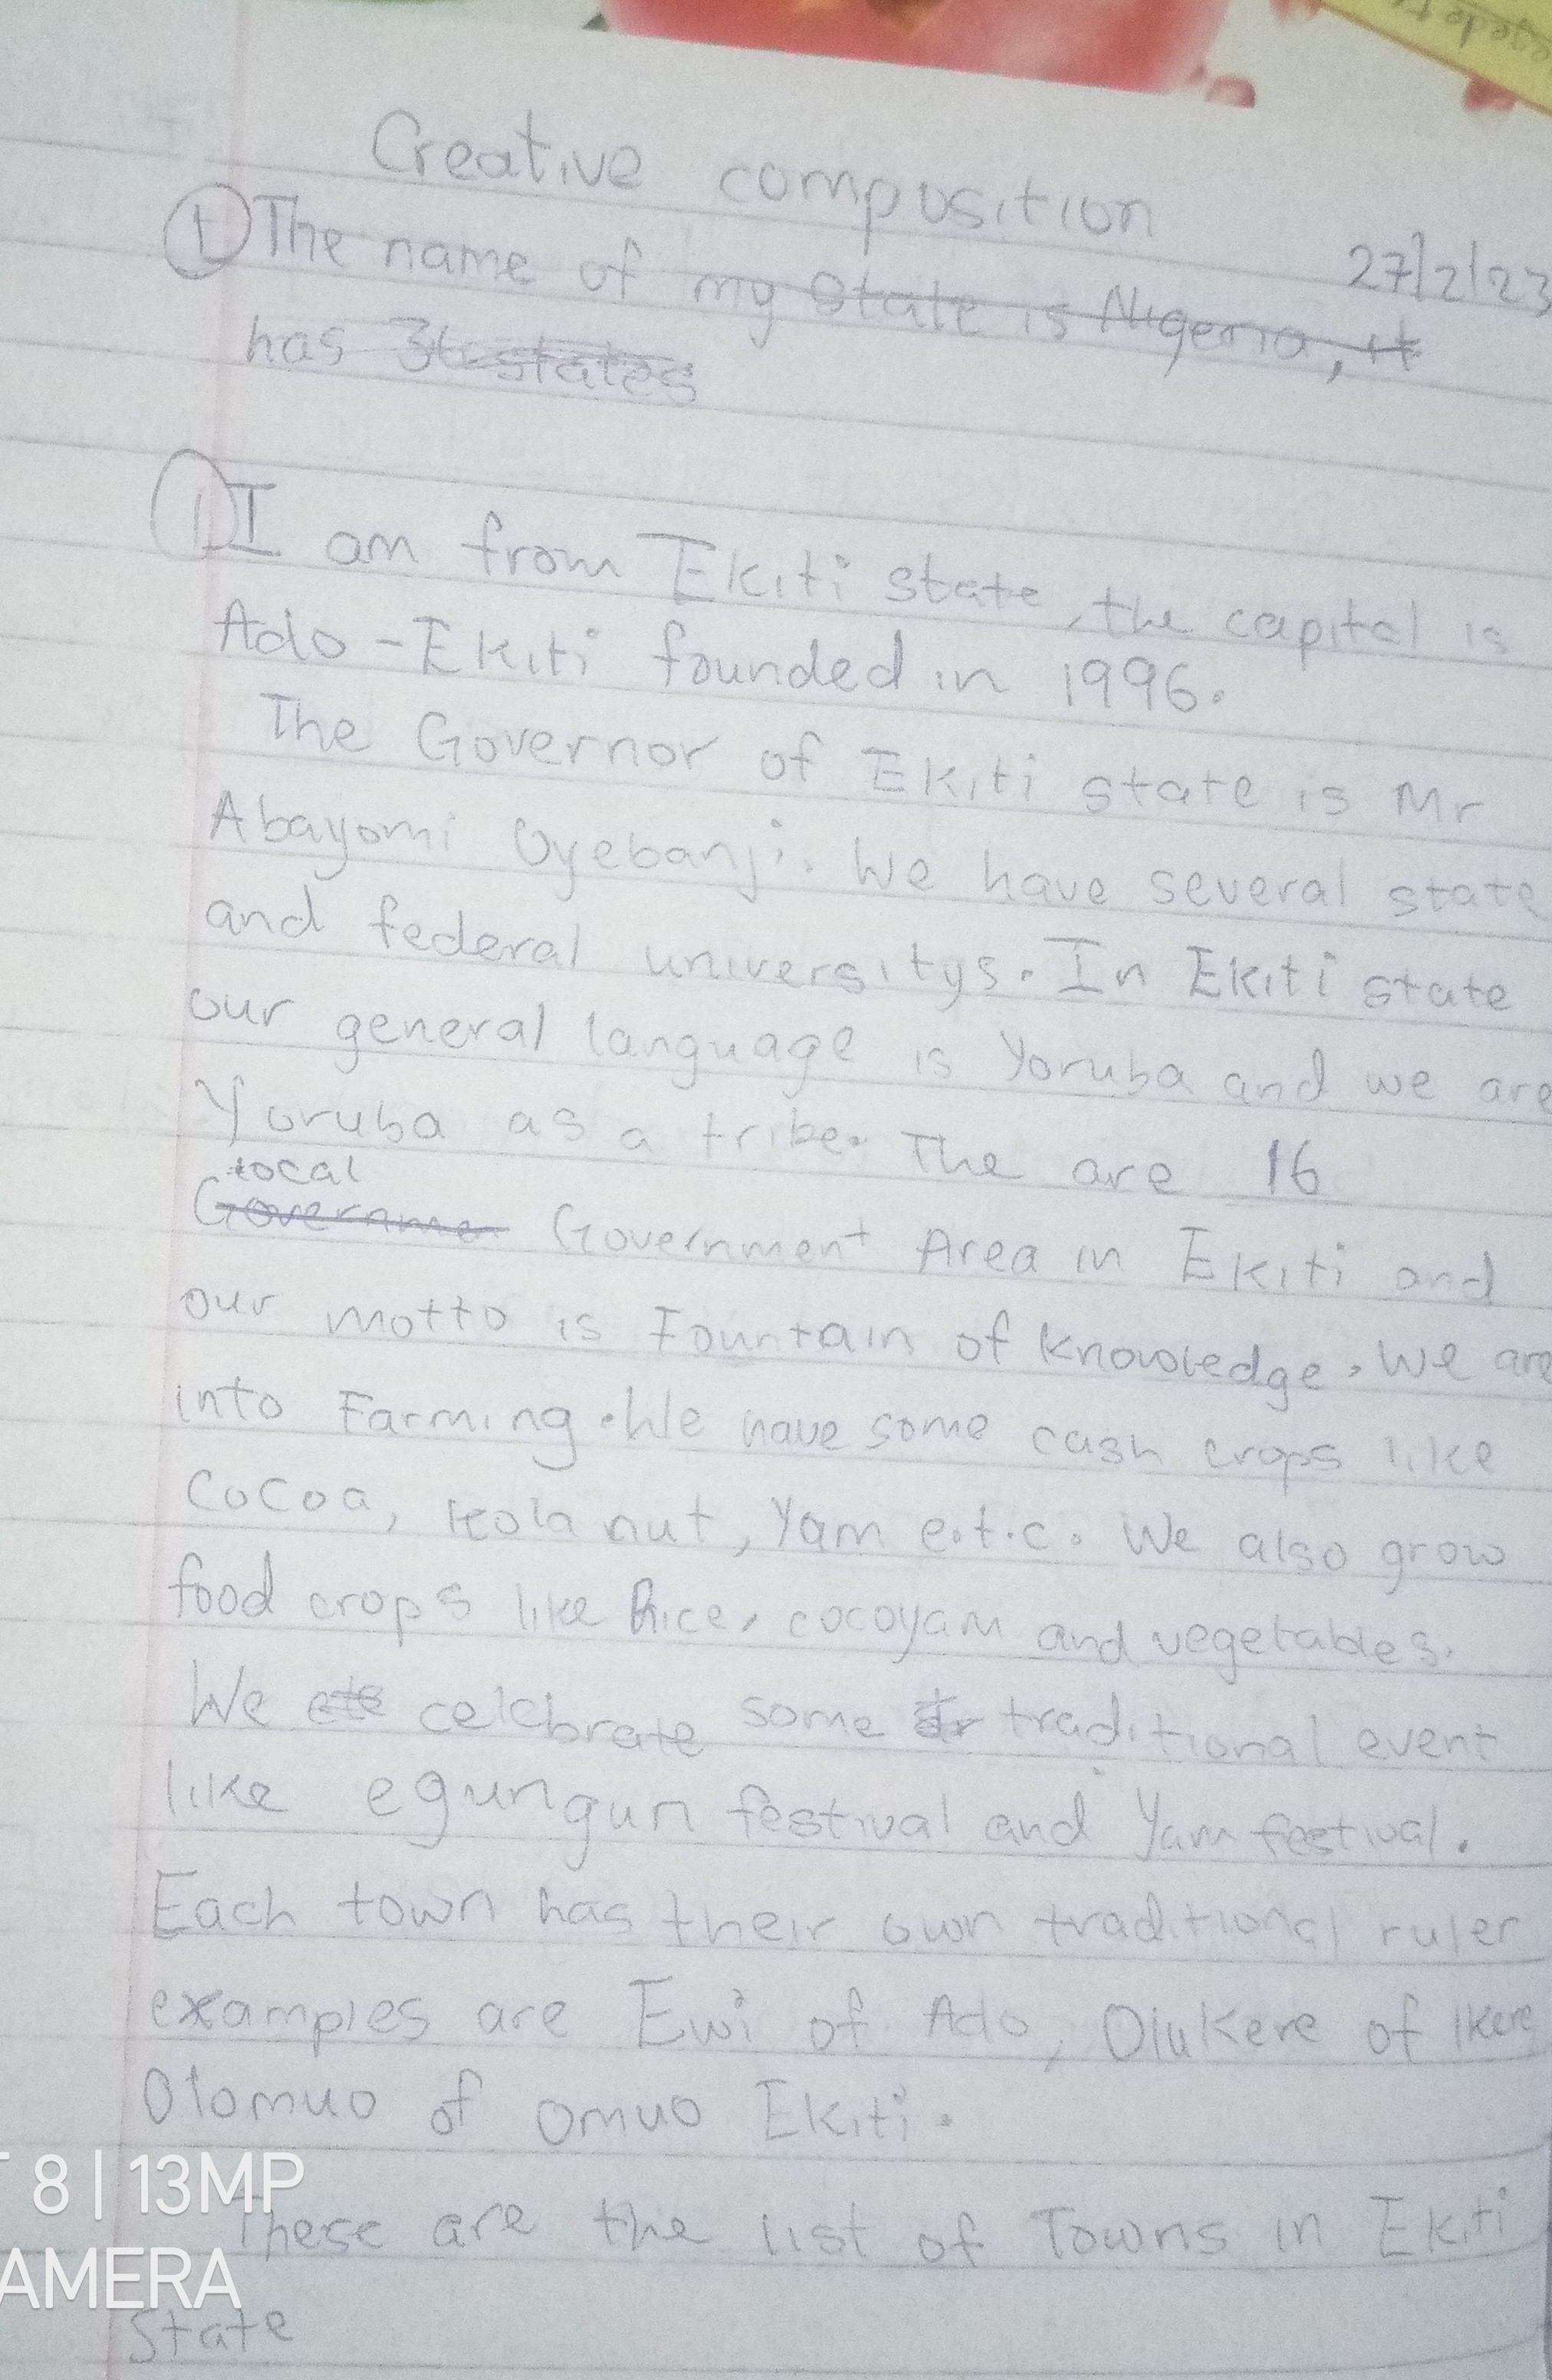 egede t
Creative composition
27/2/23
① The name of my State is Nigeria, it
has 36 states
① I am from Ekiti state, the capital is
Ado-Ekiti founded in 1996.
The Governor of Ekiti state is Mr
Abayomi Oyebanji. We have several state
and federal universitys. In Ekiti state
our general language is Yoruba and we are
Yoruba as a tribe. The are 16
local
Governme Government Area in Ekiti and
our motto is Fountain of knowledge. We are
into Farming. We have some cash crops like
Cocoa, kola nut, Yam e.t.c. We also grow
food crops like Rice, cocoyam and vegetables.
We celebrate some traditional event
like egungun festival and Yam festival.
Each town has their own traditional ruler
examples are Ewi of Ado, Olukere of Ikere
Olomuo of omuo Ekiti.
These are the list of Towns in Ekiti
State
8 | 13MP
AMERA